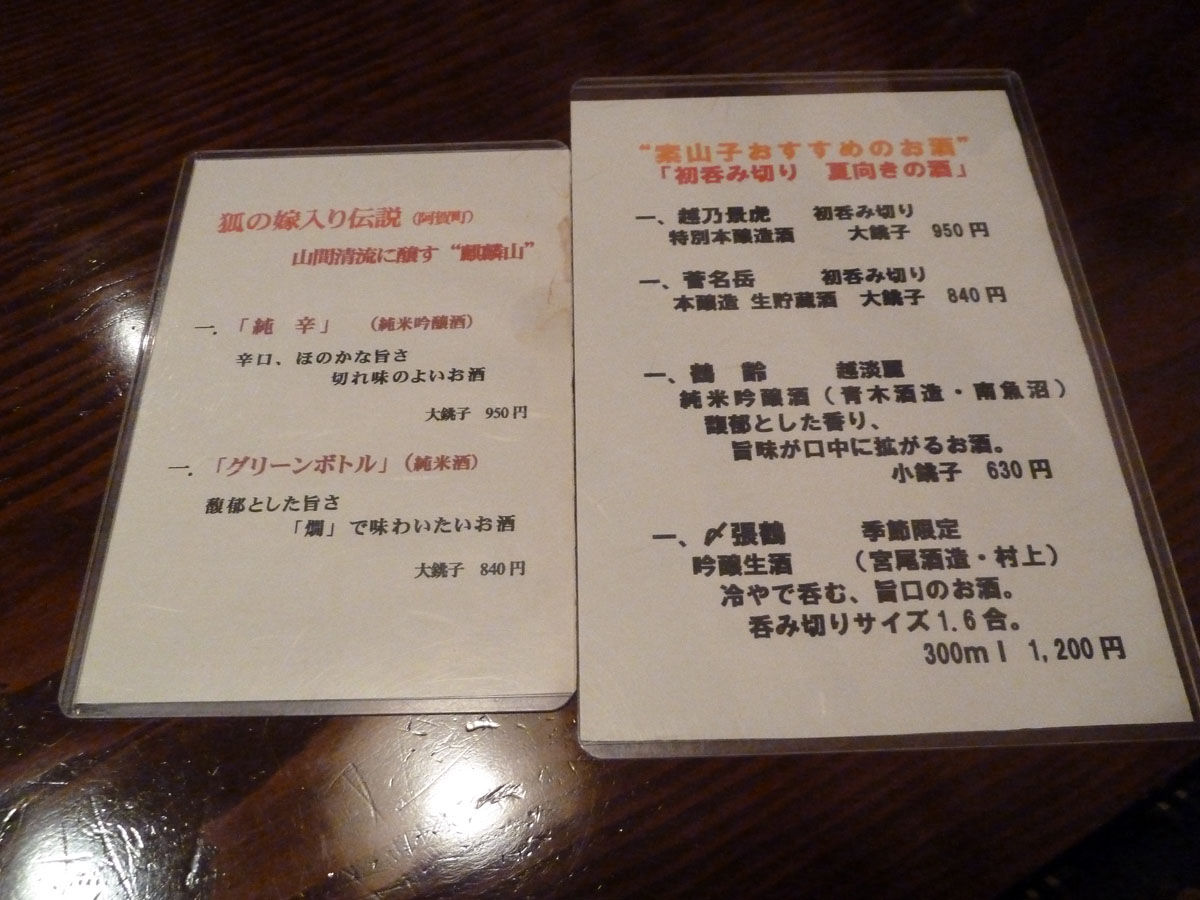 狐の嫁入り伝説（阿賀町）
山間清流に醸す“麒麟山”
一．「純　辛」　（純米吟醸酒）
辛口、ほのかな旨さ
切れ味のよいお酒
大銚子　950円
一．「グリーンボトル」（純米酒）
馥郁とした旨さ
「燗」で味わいたいお酒
大銚子　840円
“案山子おすすめのお酒”
「初呑み切り　夏向きの酒」
一、越乃景虎　　初呑み切り
特別本醸造酒　　大銚子　950円
一、菅名岳　　　初呑み切り
本醸造 生貯蔵酒　大銚子　840円
一、鶴　齢　　　越淡麗
純米吟醸酒（青木酒造・南魚沼）
馥郁とした香り、
旨味が口中に拡がるお酒。
小銚子　630円
一、〆張鶴　　　季節限定
吟醸生酒　　（宮尾酒造・村上）
冷やで呑む、旨口のお酒。
呑み切りサイズ1.6合。
300ｍｌ 1,200円